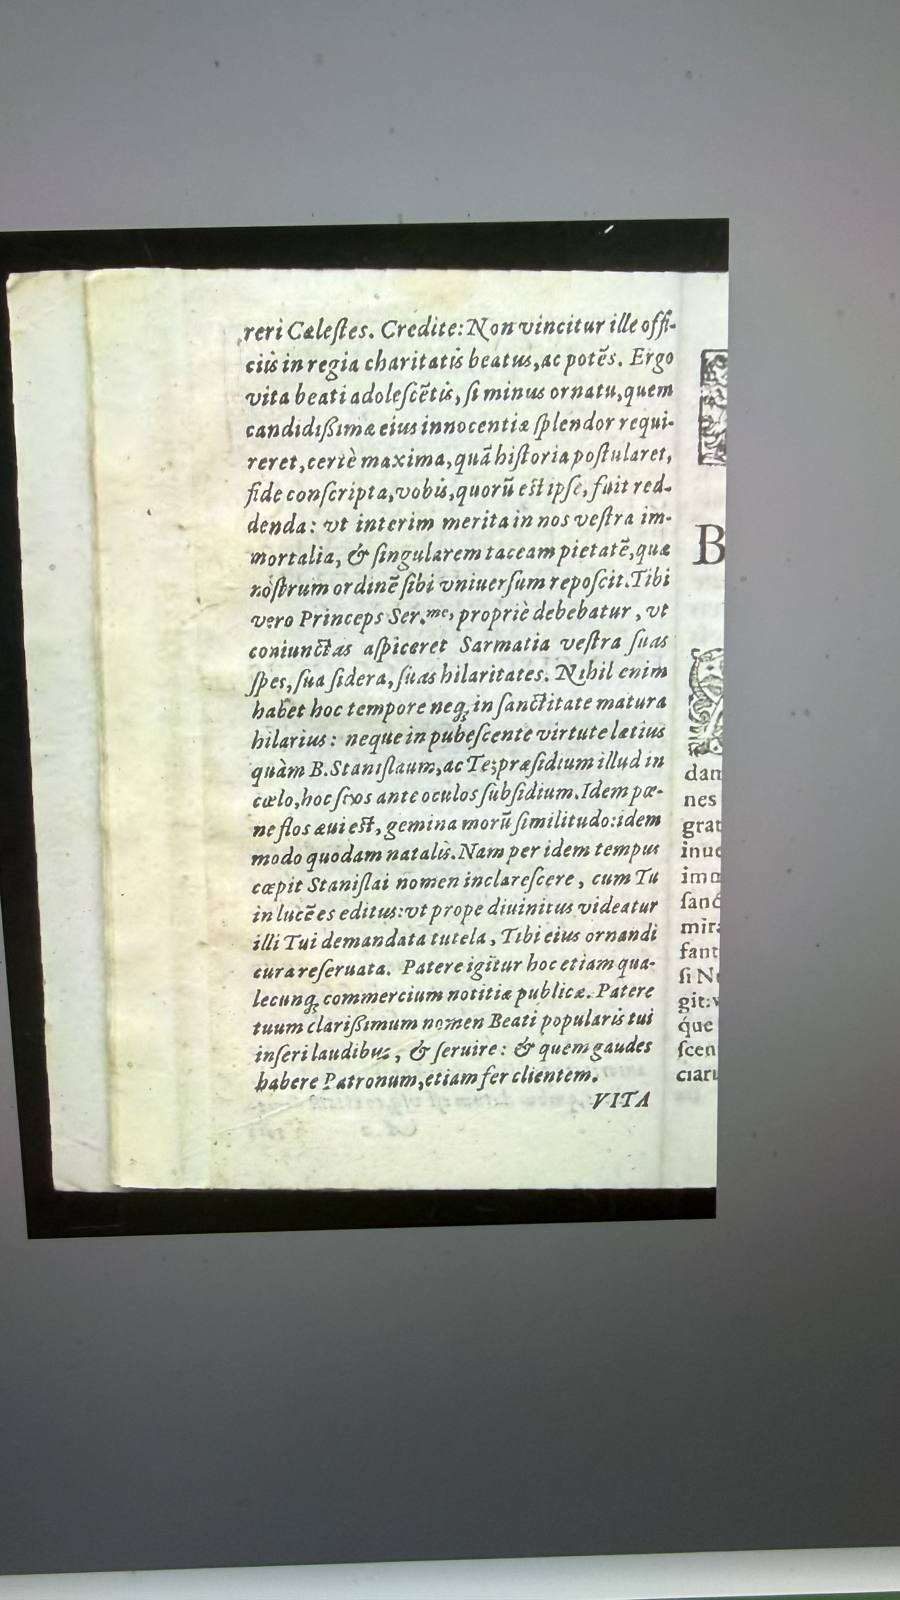 reri Cælestes. Credite: Non vincitur ille offi-
ciis in regia charitatis beatus, ac potẽs. Ergo
vita beati adolescẽtis, si minus ornatu, quem
candidißimæ eius innocentiæ splendor requi-
reret, certè maxima, quã historia postularet,
fide conscripta, vobis, quorũ est ipse, fuit red-
denda: vt interim merita in nos vestra im-
mortalia, & singularem taceam pietatẽ, quæ
nostrum ordinẽ sibi vniuersum reposcit. Tibi
vero Princeps Ser.me, propriè debebatur, vt
coniunctas aspiceret Sarmatia vestra suas
spes, sua sidera, suas hilaritates. Nihil enim
habet hoc tempore neq; in sanctitate matura
hilarius: neque in pubescente virtute lætius
quàm B. Stanislaum, ac Te; præsidium illud in
cœlo, hoc ante oculos subsidium. Idem pœ-
ne flos æui est, gemina morũ similitudo: idem
modo quodam natalis. Nam per idem tempus
cœpit Stanislai nomen inclarescere, cum Tu
in lucẽ es editus: vt prope diuinitus videatur
illi Tui demandata tutela, Tibi eius ornandi
cura reseruata. Patere igitur hoc etiam qua-
lecunq; commercium notitiæ publicæ. Patere
tuum clarißimum nomen Beati popularis tui
inseri laudibus, & seruire: & quem gaudes
habere Patronum, etiam fer clientem.
VITA
B
dam
nes
grat
inue
imm
sanc
mira
fant
si Nu
git: v
que
scen
ciari